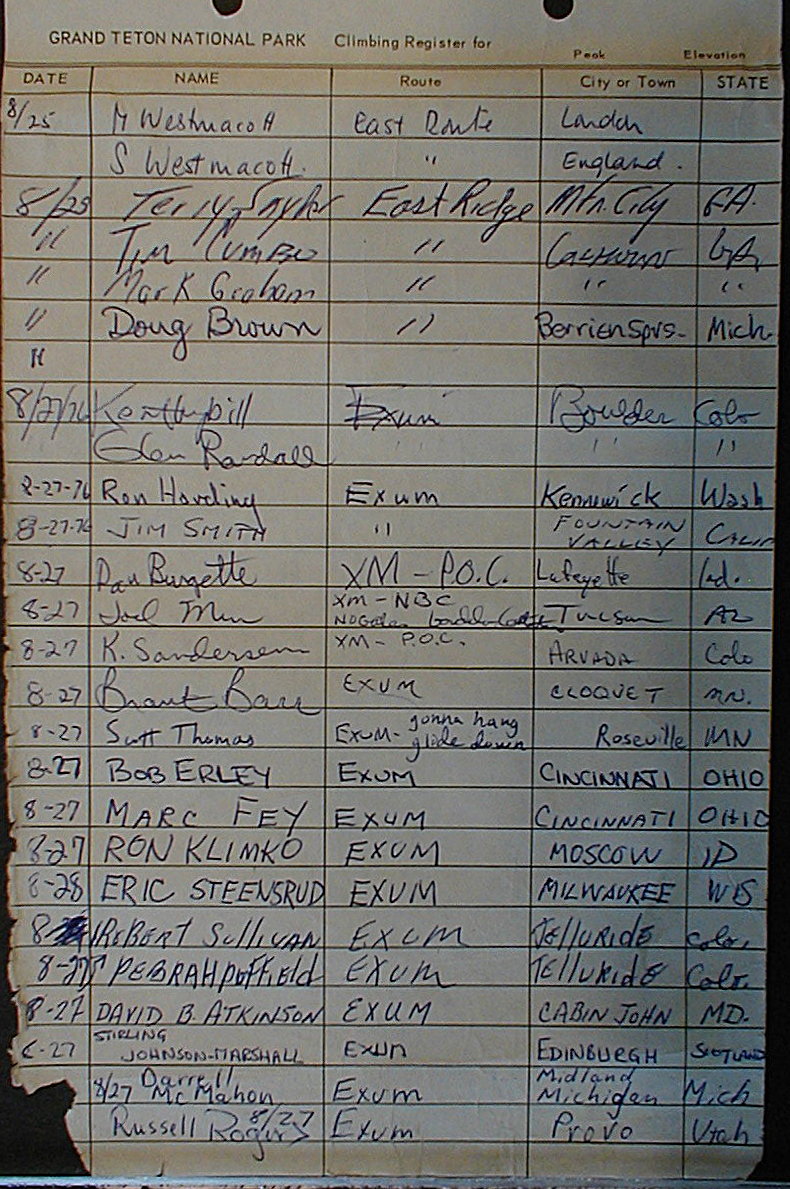 GRAND TETON NATIONAL PARK Climbing Register for Peak Elevation
DATE NAME Route City or Town STATE
8/25 M Westmacott East Route London
S Westmacott. " England.
8/25 Terry Snyder East Ridge Mtn. City GA.
" Tim Cumbo " Calhoun GA,
" Mark Graham " " "
" Doug Brown " Berrien Sprs. Mich.
"
8/27/76 Exum Boulder Colo
Glen Randall " " "
8-27-76 Ron Harding Exum Kennewick Wash
8-27-76 JIM SMITH " FOUNTAIN VALLEY CALIF
8-27 Dan Burgette XM - P.O.C. Lafayette Ind.
8-27 Joel XM - NBC Tucson AZ
8-27 K. Sandersen XM - P.O.C. ARVADA Colo
8-27 Brant Barr EXUM CLOQUET MN.
8-27 Scott Thomas EXUM- gonna hang glide down Roseville MN
8-27 BOB ERLEY EXUM CINCINNATI OHIO
8-27 MARC FEY EXUM CINCINNATI OHIO
8-27 RON KLIMKO EXUM MOSCOW ID
8-28 ERIC STEENSRUD EXUM MILWAUKEE WIS
8- ROBERT SullIVAN EXUM TEllURIDE Colo.
8-27 DEBRAH Duffield EXUM TEllURIDE Colo.
8-27 DAVID B. ATKINSON EXUM CABIN JOHN MD.
-27 STIRLING JOHNSON-MARSHALL EXUM EDINBURGH SCOTLAND
8/27 Darrell McMahon Exum Midland Michigan Mich
Russell Rogers 8/27 Exum Provo Utah